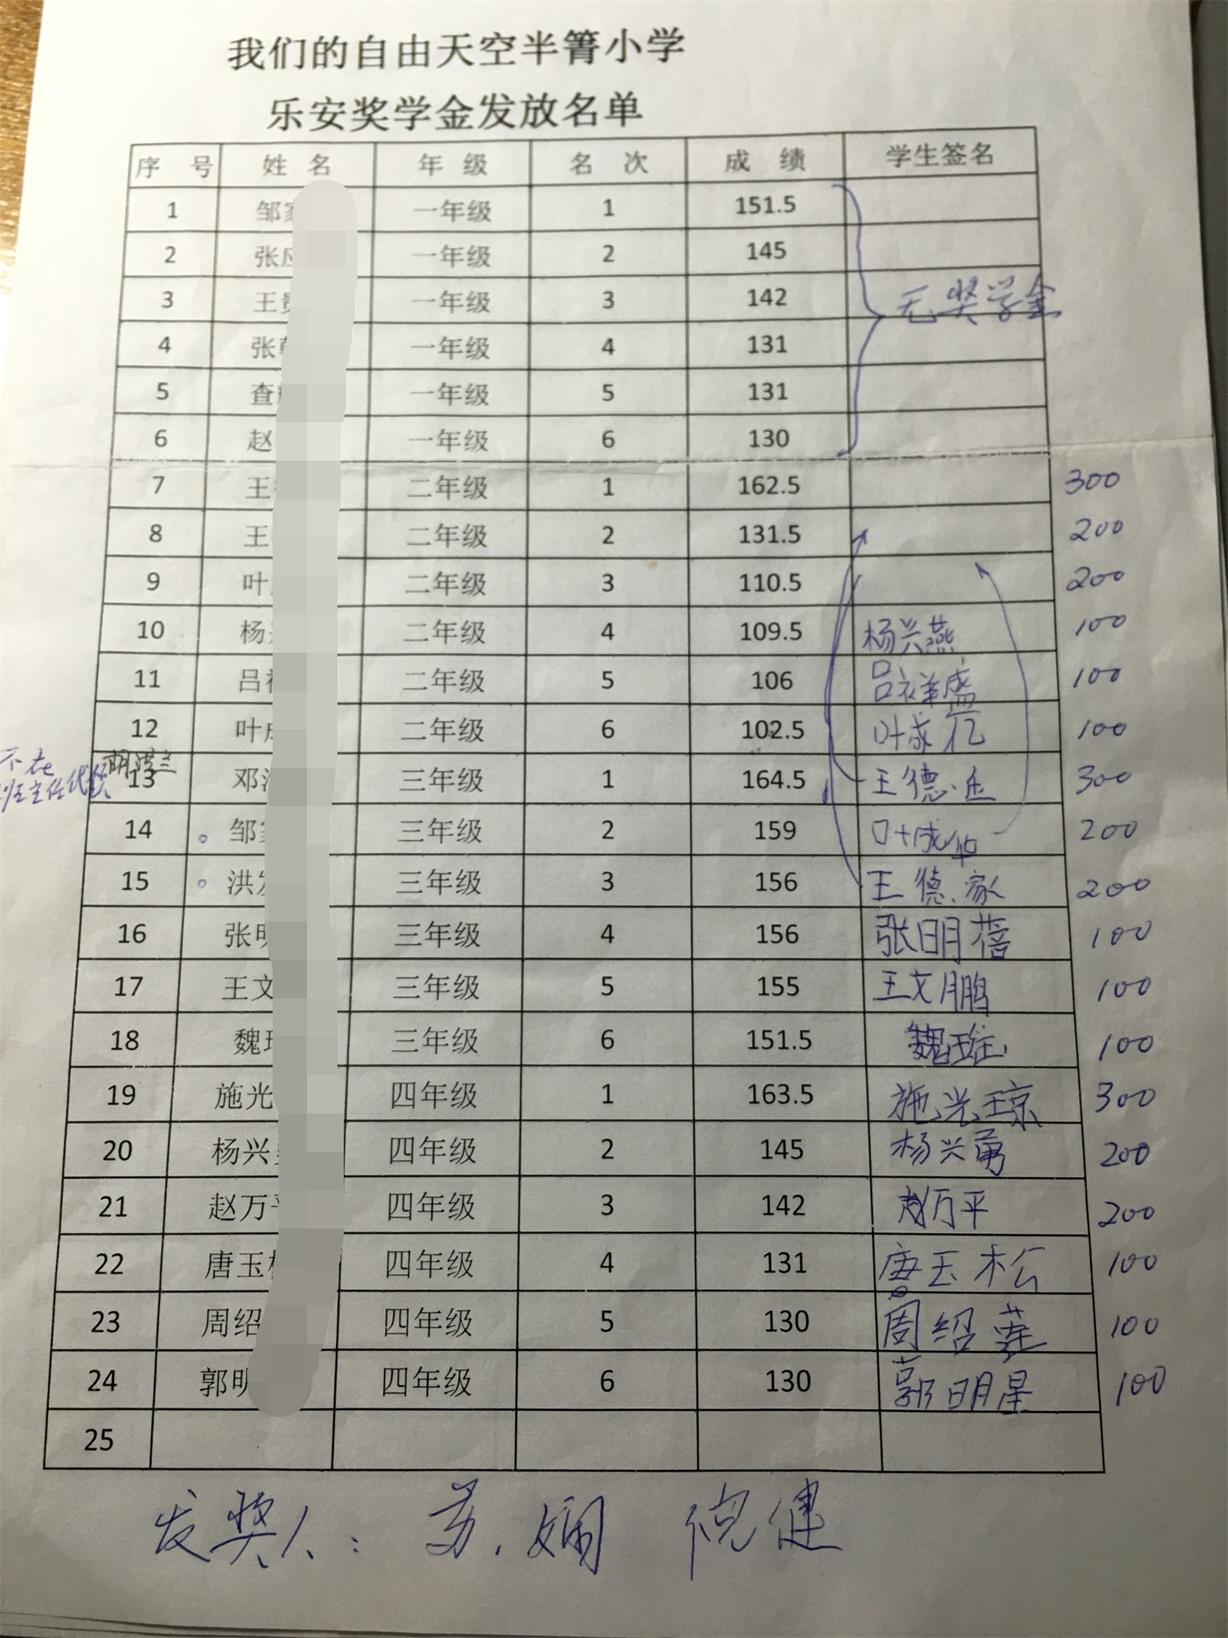 我们的自由天空半箐小学
乐安奖学金发放名单
序 号 姓 名 年 级 名 次 成 绩 学生签名
1 邹 一年级 1 151.5
2 张应 一年级 2 145
3 王贵 一年级 3 142
无奖学金
4 张 一年级 4 131
5 查 一年级 5 131
6 赵 一年级 6 130
7 王 二年级 1 162.5 300
8 王 二年级 2 131.5 200
9 叶 二年级 3 110.5 200
10 杨 二年级 4 109.5 杨兴燕 100
11 吕 二年级 5 106 吕祥盛 100
12 叶成 二年级 6 102.5 叶成亿 100
不在
班主任代领
13 邓 三年级 1 164.5 王德 300
14 邹 三年级 2 159 叶成华 200
15 洪发 三年级 3 156 王德家 200
16 张明 三年级 4 156 张明蓓 100
17 王文 三年级 5 155 王文鹏 100
18 魏 三年级 6 151.5 魏 100
19 施光 四年级 1 163.5 施光琼 300
20 杨兴 四年级 2 145 杨兴勇 200
21 赵万平 四年级 3 142 赵万平 200
22 唐玉 四年级 4 131 唐玉松 100
23 周绍 四年级 5 130 周绍莲 100
24 郭明 四年级 6 130 郭明星 100
25
发奖人： 苏娴 倪健